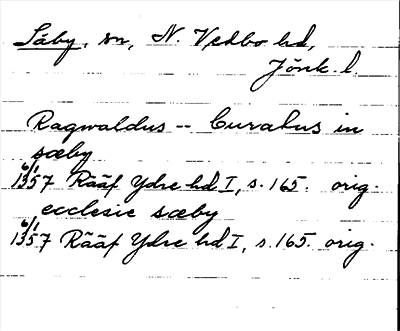 Säby, sn, N. Vedbo hd,
Jönk. l.
Ragwaldus -- Curatus in
sæby
6/1
1357 Rääf Ydre hd I, s. 165. orig.
ecclesie sæby
6/1
1357 Rääf Ydre hd I, s. 165. orig.